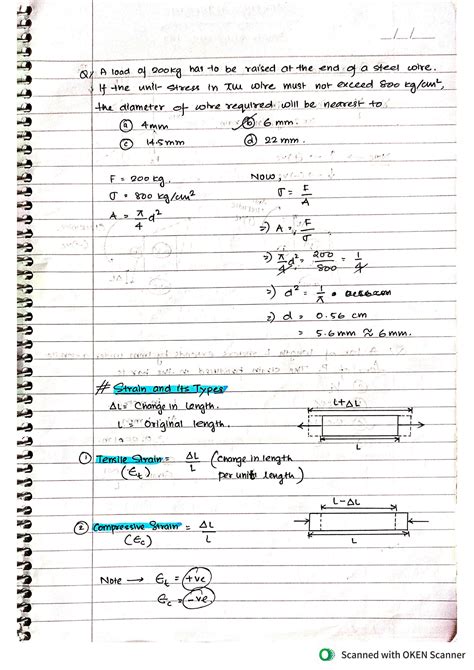 __/__/__
Q) A load of 200kg has to be raised at the end of a steel wire.
If the unit-stress in the wire must not exceed 800 kg/cm²,
the diameter of wire required will be nearest to
(a) 4mm (b) 6 mm.
(c) 14.5mm (d) 22 mm.
F = 200 kg.
σ = 800 kg/cm²
A = π/4 d²
Now,
σ = F/A
=> A = F/σ
=> π/4 d² = 200/800 = 1/4
=> d² = 1/π
=> d = 0.56 cm
= 5.6 mm ≈ 6mm.
# Strain and Its Types
ΔL = Change in length.
L = Original length.
L+ΔL
L
① Tensile Strain = ΔL/L (change in length
(Є_t) per unit length)
L-ΔL
L
② Compressive Strain = ΔL/L
(Є_c)
Note → Є_t = +ve
Є_c = -ve
Scanned with OKEN Scanner